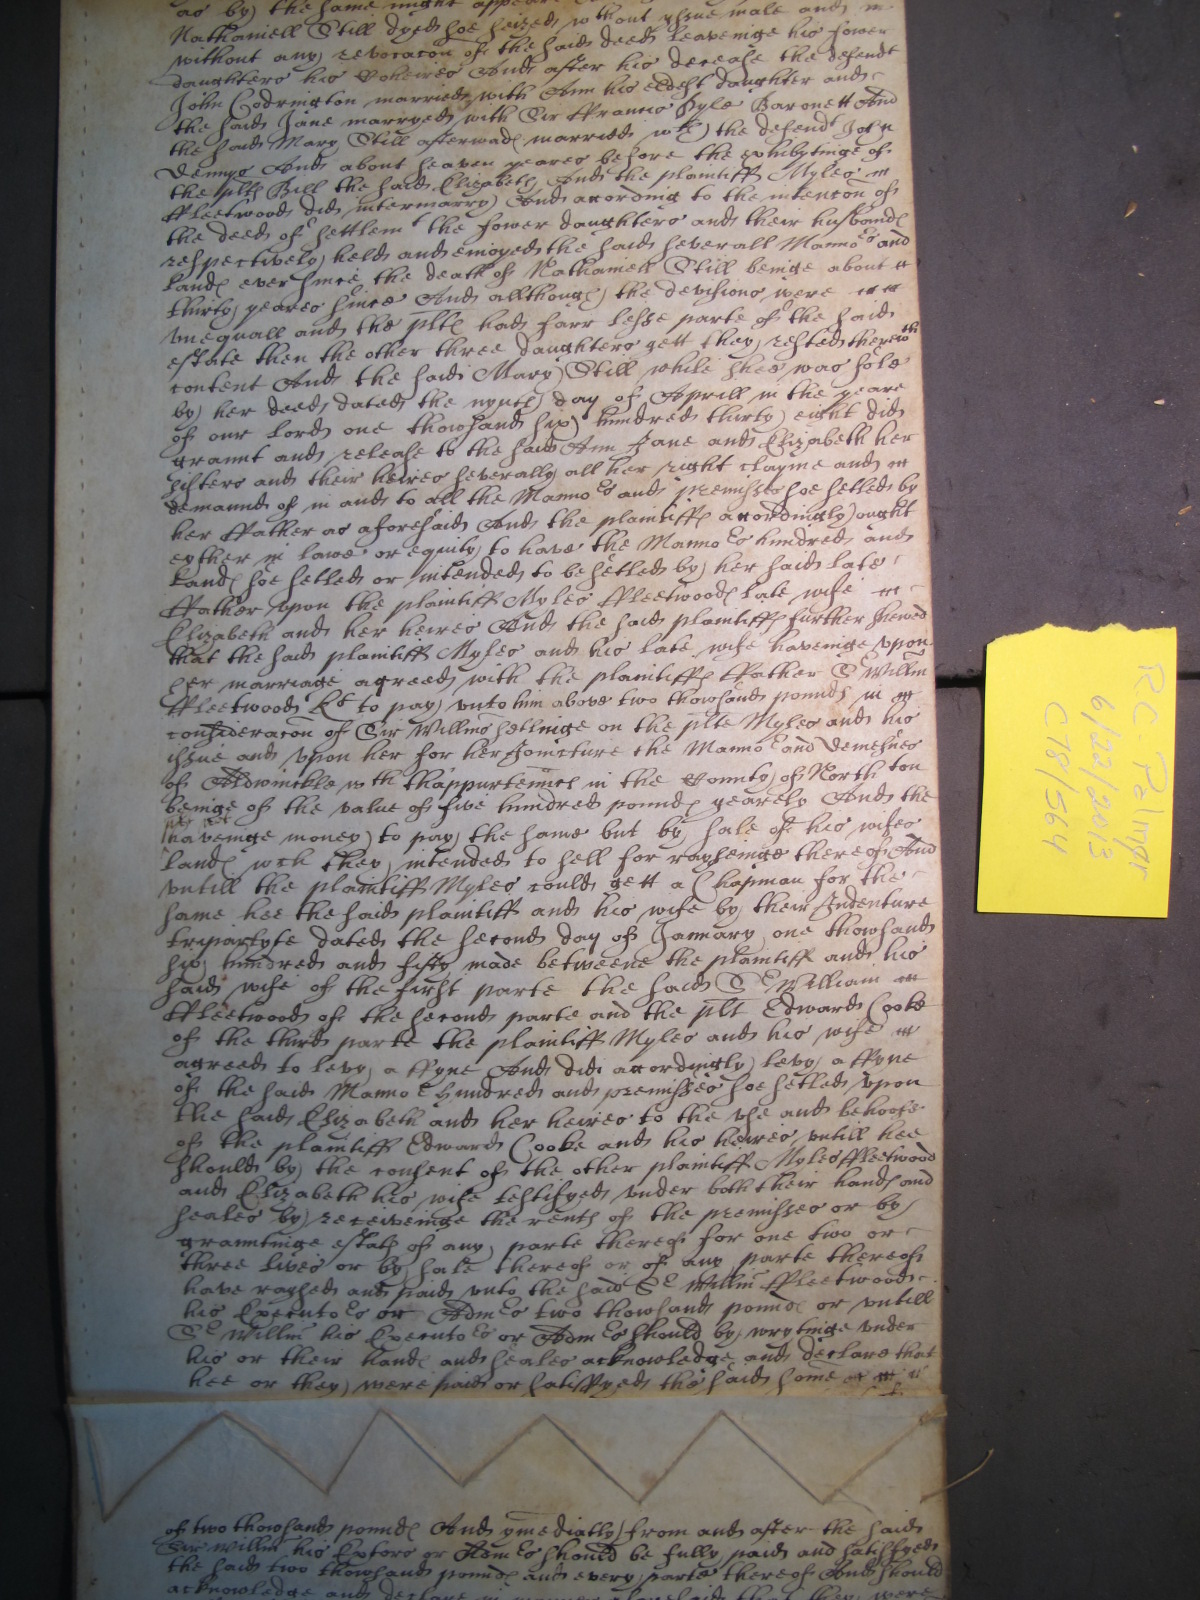 as by the same might appeare
Nathaniell Still dyed soe seized without yssue male and
without any revocacon of the said deed leaveinge his fower
daughters his Coheires And after his decease the defendt
John Codrington married with Ann his eldest daughter and
the said Jane marryed with Sir Francis Pyle Baronett And
the said Mary Still afterward married wth the defendt John
Dennys And about seaven yeares before the exhibytinge of
the plts Bill the said Elizabeth And the plaintiff Myles
ffleetwood did intermarry And according to the intencon of
the deed of settlemt the fower daughters and their husbands
respectively held and enioyed the said severall Manno rs and
Lands ever since the death of Nathaniell Still beinge about
thirty yeares since And allthough the devisions were
vnequall and the plts had farr lesse parte of the said
estate then the other three daughters yett they rested therewth
content And the said Mary Still while shee was sole
by her deed dated the nynth day of Aprill in the yeare
of our Lord one thowsand six hundred thirty eight did
graunt and release to the said Ann Jane and Elizabeth her
sisters and their heires severally all her right clayme and
demaund of in and to all the Manno rs and premisses soe setled by
her ffather as aforesaid And the plaintiffs accordingly ought
eyther in lawe or equity to have the Manno rs hundred and
Lands soe setled or intended to be setled by her said late
ffather vpon the plaintiff Myles ffleetwoods late wife
Elizabeth and her heires And the said plaintiffs further shewed
that the said plaintiff Myles and his late wife haveinge vpon
her marriage agreed with the plaintiffs ffather Sr Willm
ffleetwood Kt to pay vnto him above two thowsand pounds in
consideracon of Sir Willms setlinge on the plte Myles and his
issue and vpon her for her Joincture the Manno r and demesnes
of Aldwinckle wth thappurtennces in the County of North ton
beinge of the value of five hundred pounds yearely And the
haveinge money to pay the same but by sale of his wifes
Lands wch they intended to sell for rayseinge thereof And
vntill the plaintiff Myles could gett a Chapman for the
same hee the said plaintiff and his wife by their Indenture
tripartyte dated the second day of January one thowsand
six hundred and fifty made betweene the plaintiff and his
said wife of the first parte the said Sr William
ffleetwood of the second parte and the plt Edward Cooke
of the third parte the plaintiff Myles and his wife
agreed to levy a ffyne And did accordingly levy a ffyne
of the said Manno r hundred and premisses soe setled vpon
the said Elizabeth and her heires to the vse and behoofe
of the plaintiff Edward Cooke and his heires vntill hee
should by the consent of the other plaintiff Myles ffleetwood
and Elizabeth his wife testifyed vnder both their hands and
seales by receiveinge the rents of the premisses or by
grauntinge estats of any parte thereof for one two or
three lives or by sale thereof or of any parte thereof
have raysed and paid vnto the said Sr Willm ffleetwood
his Executo rs or Adm rs two thowsand pounds or vntill
Sr Willm his Executo rs or Adm rs should by wrytinge vnder
his or their hands and seales acknowledge and declare that
hee or they were paid or satisfyed the said some
of two thowsand pounds And ymediatly from and after the said
Sir Willm his Exetors or Adm rs should be fully paid and satisfyed
the said two thowsand pounds and every parte thereof And should
acknowledge and declare in manner aforesaid that they were
R.C. Palmer
6/22/2013
C78/564